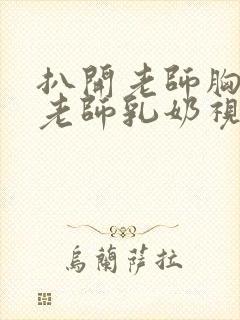 扒開老師胸
老師乳奶視
烏蘭薩拉